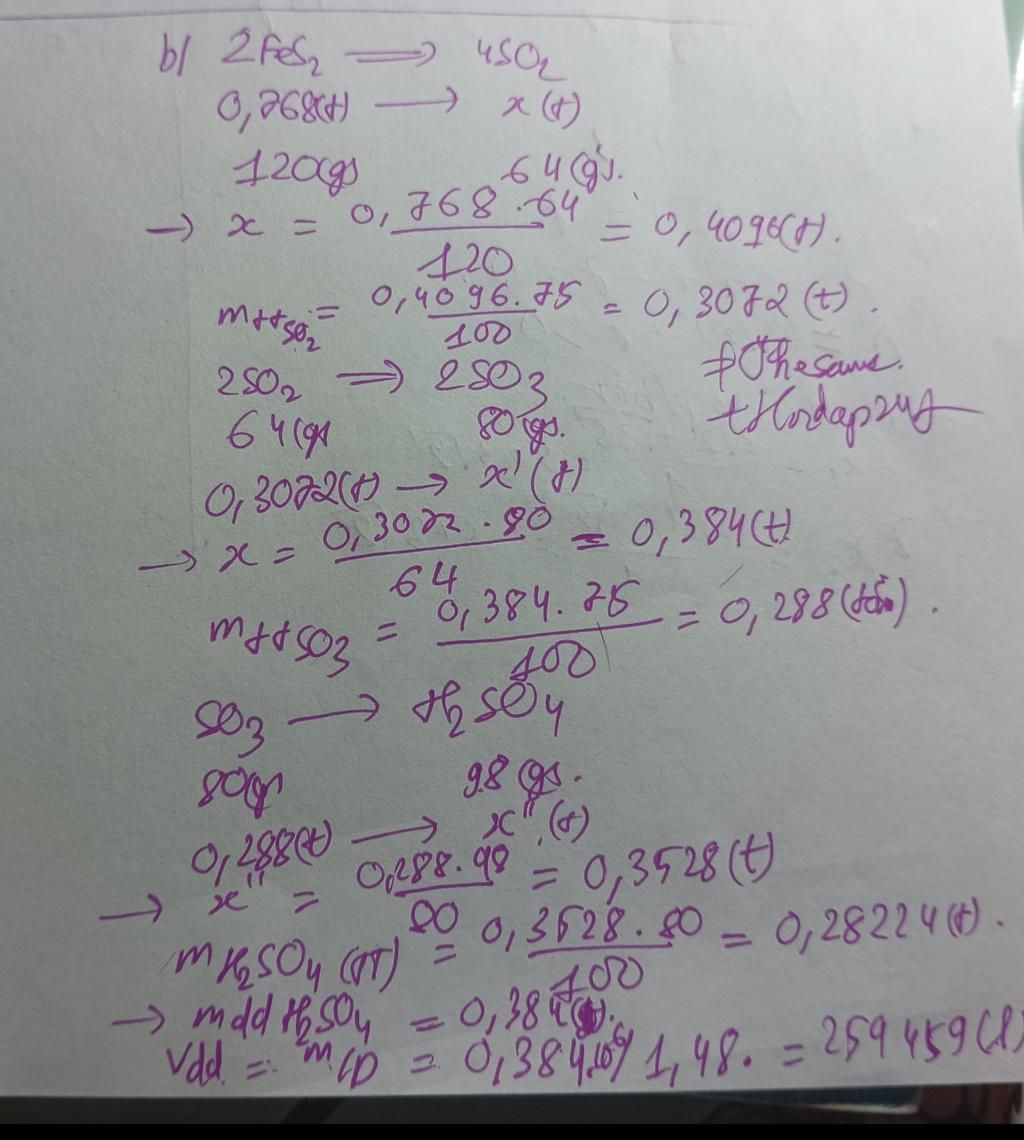 b/ 2FeS2 ⟹ 4SO2
0,768(t) → x (t)
120(g) 64(g).
→ x = 0,768.64/120 = 0,4096(t).
mttSO2 = 0,4096.75/100 = 0,3072 (t).
2SO2 ⟹ 2SO3
64(g) 80(g).
0,3072(t) → x' (t)
→ x = 0,3072.80/64 = 0,384(t)
mttSO3 = 0,384.75/100 = 0,288(tấn).
SO3 → H2SO4
80(g) 98(g).
0,288(t) → x'' (t)
→ x'' = 0,288.98/80 = 0,3528(t)
mH2SO4 (TT) = 0,3528.80/100 = 0,28224(t).
→ mdd H2SO4 = 0,384(t).
Vdd = m/D = 0,384.10^6/1,48. = 259459(l)